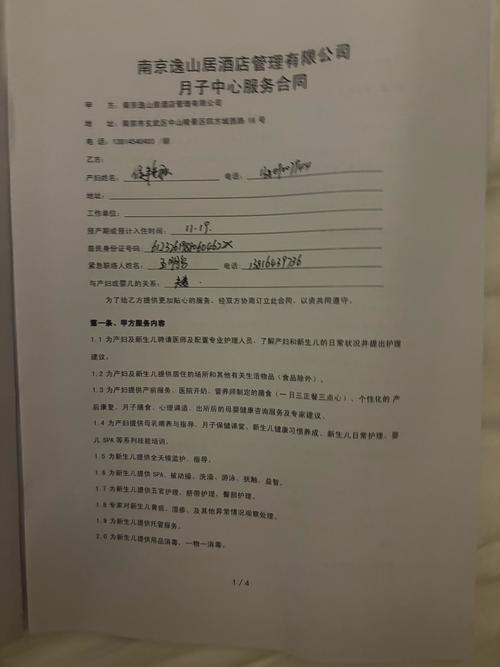 南京逸山居酒店管理有限公司
月子中心服务合同
甲 方：南京逸山居酒店管理有限公司
地 址：南京市玄武区中山陵景区四方城西路 18 号
电 话：
乙方：
产妇姓名： 电话：
地址：
工作单位：
预产期或预计入住时间：11-19.
居民身份证号码：
紧急联络人姓名： 电话：13816439736
与产妇或婴儿的关系：
为了给乙方提供更加贴心的服务，经双方协商订立此合同，以资共同遵守。
第一条、甲方服务内容
1.1 为产妇及新生儿聘请医师及配置专业护理人员，了解产妇和新生儿的日常状况并提出护理
建议。
1.2 为产妇及新生儿提供居住的场所和其他有关生活物品（食品除外）。
1.3 为产妇提供产前服务、医院开奶、营养师制定的膳食（一日三正餐三点心）、个性化的 产
后康复、月子膳食、心理调适、出所后的母婴健康咨询服务及专家建议。
1.4 为产妇提供母乳喂养与指导、月子保健课堂、新生儿健康习惯养成、新生儿日常护理、婴
儿 SPA 等系列技能培训。
1.5 为新生儿提供全天候监护、指导。
1.6 为新生儿提供 SPA、被动操、洗澡、游泳、抚触、益智。
1.7 为新生儿提供五官护理、脐带护理、臀部护理。
1.8 专家对新生儿黄疸、湿疹、及其他异常情况观察处理。
1.9 为新生儿提供托管服务。
2.0 为新生儿提供用品消毒，一物一消毒。
1 / 4